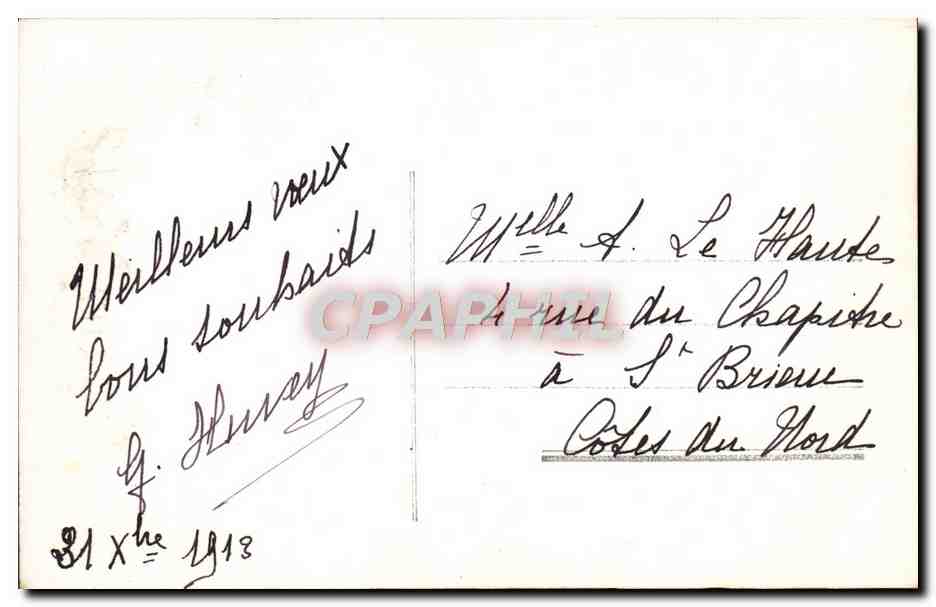 Meilleurs vœux
bons souhaits
G. Huvey
31 Xbre 1913
Melle A. Le Hautes
4 rue du Chapitre
à St Brieuc
Côtes du Nord
CPAPHIL